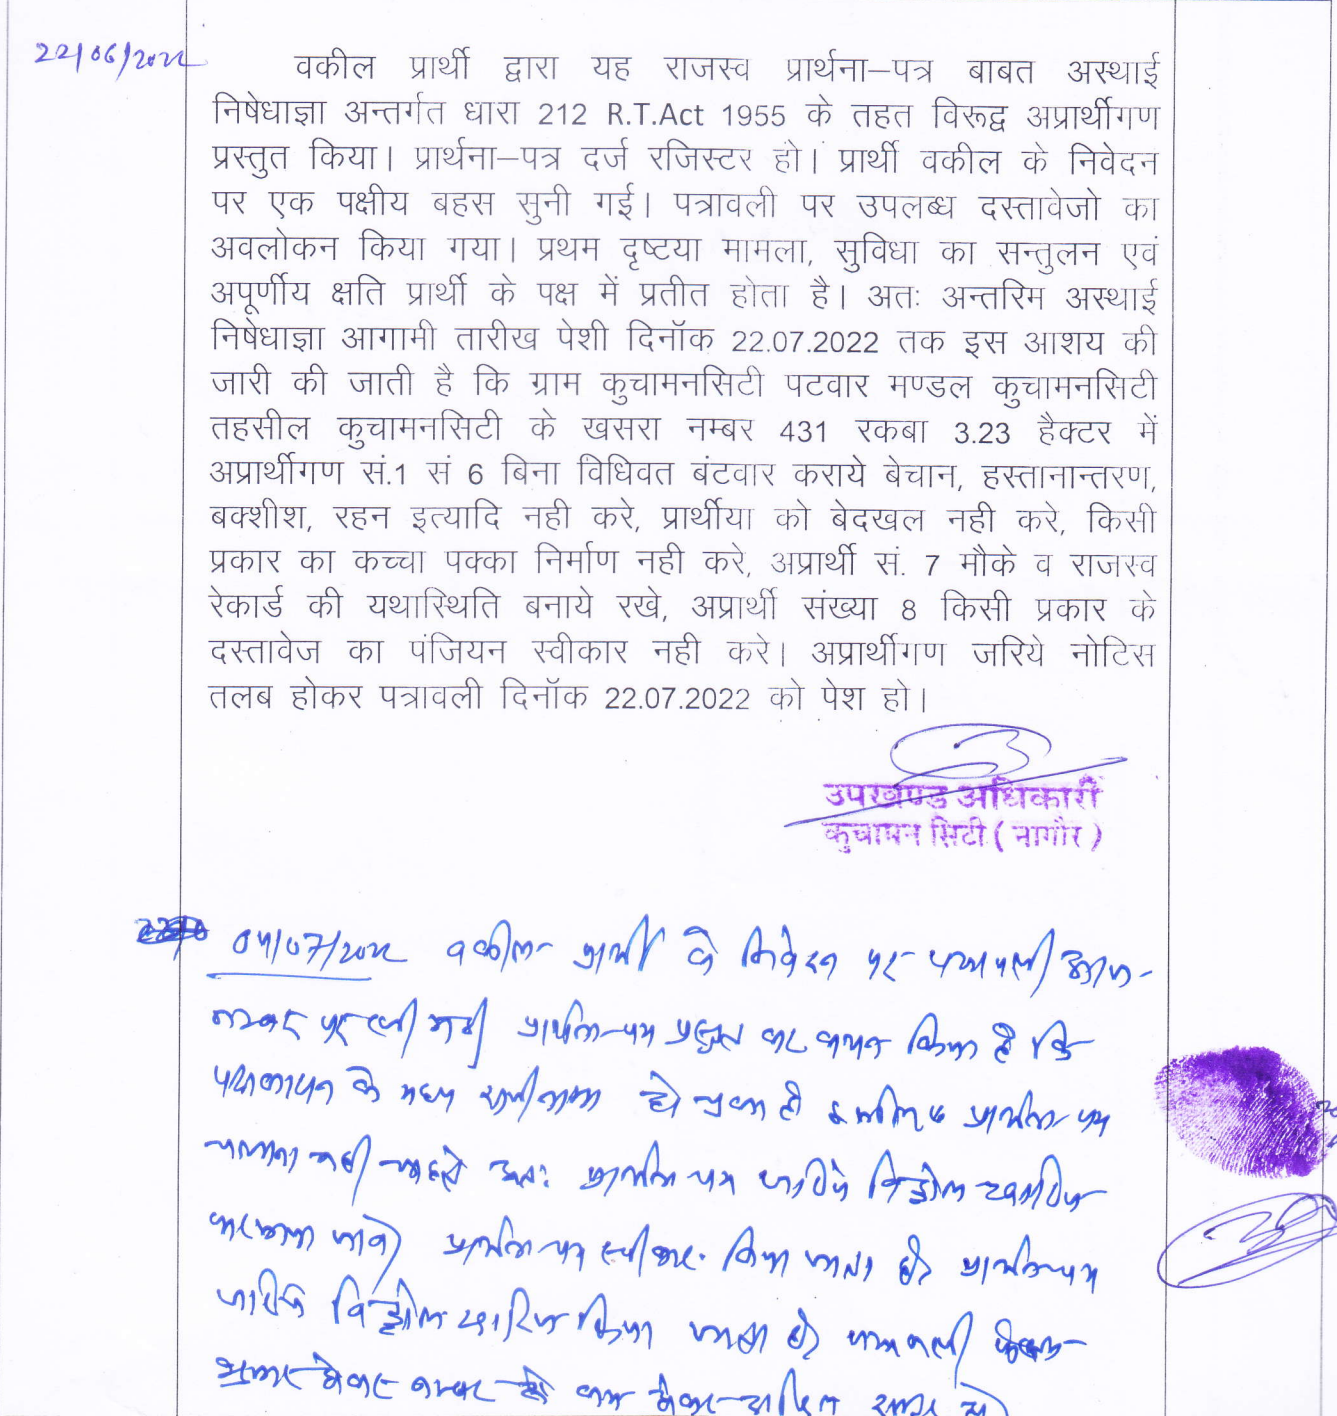 22/06/2022
वकील प्रार्थी द्वारा यह राजस्व प्रार्थना–पत्र बाबत अस्थाई
निषेधाज्ञा अन्तर्गत धारा 212 R.T.Act 1955 के तहत विरूद्व अप्रार्थीगण
प्रस्तुत किया। प्रार्थना–पत्र दर्ज रजिस्टर हो। प्रार्थी वकील के निवेदन
पर एक पक्षीय बहस सुनी गई। पत्रावली पर उपलब्ध दस्तावेजो का
अवलोकन किया गया। प्रथम दृष्टया मामला, सुविधा का सन्तुलन एवं
अपूर्णीय क्षति प्रार्थी के पक्ष में प्रतीत होता है। अतः अन्तरिम अस्थाई
निषेधाज्ञा आगामी तारीख पेशी दिनॉक 22.07.2022 तक इस आशय की
जारी की जाती है कि ग्राम कुचामनसिटी पटवार मण्डल कुचामनसिटी
तहसील कुचामनसिटी के खसरा नम्बर 431 रकबा 3.23 हैक्टर में
अप्रार्थीगण सं.1 सं 6 बिना विधिवत बंटवार कराये बेचान, हस्तानान्तरण,
बक्शीश, रहन इत्यादि नही करे, प्रार्थीया को बेदखल नही करे, किसी
प्रकार का कच्चा पक्का निर्माण नही करे, अप्रार्थी सं. 7 मौके व राजस्व
रेकार्ड की यथास्थिति बनाये रखे, अप्रार्थी संख्या 8 किसी प्रकार के
दस्तावेज का पंजियन स्वीकार नही करे। अप्रार्थीगण जरिये नोटिस
तलब होकर पत्रावली दिनॉक 22.07.2022 को पेश हो।
उपखण्ड अधिकारी
कुचामन सिटी ( नागौर )
07/2022 वकील प्रार्थी के निवेदन पर पत्रावली आज
प्रार्थना पत्र प्रस्तुत कर कथन किया है कि
के मध्य राजीनामा हो चुका है इसलिए प्रार्थना पत्र
चलाना नही चाहते अतः प्रार्थना पत्र विड्रोल खारिज
जावे। प्रार्थना पत्र स्वीकार किया जाता है। प्रार्थना पत्र
विड्रोल खारिज किया जाता है। पत्रावली